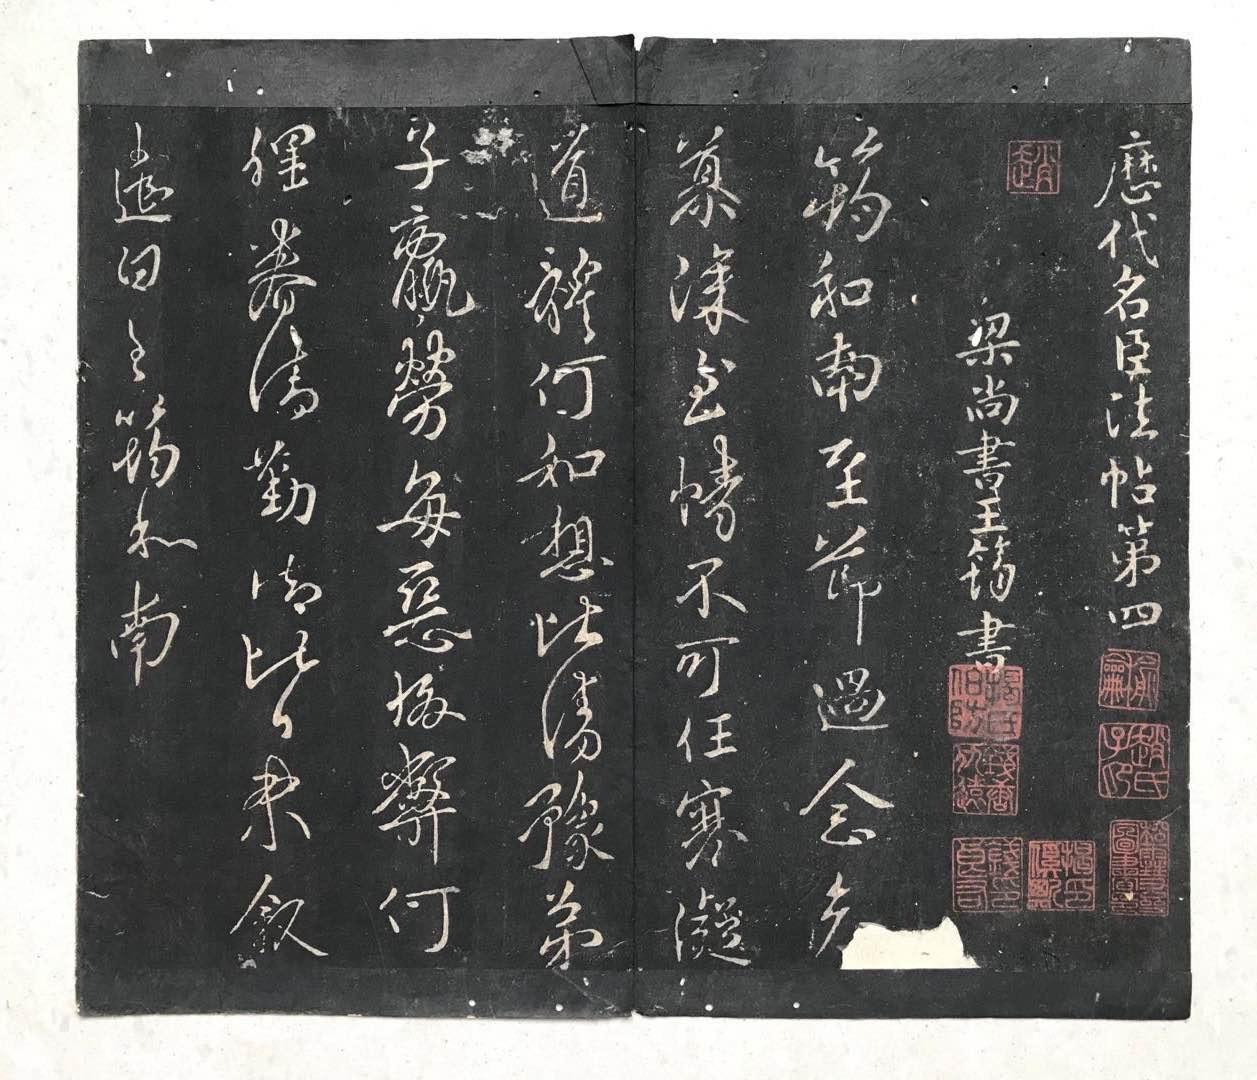 歷代名臣法帖第四
梁尚書王筠書
筠和南至節過念
慕深至情不可任寒凝
道體何和想比清豫弟
子羸勞每惡弊何
理眷清勤比敘
遣白筠和南
趙
趙氏